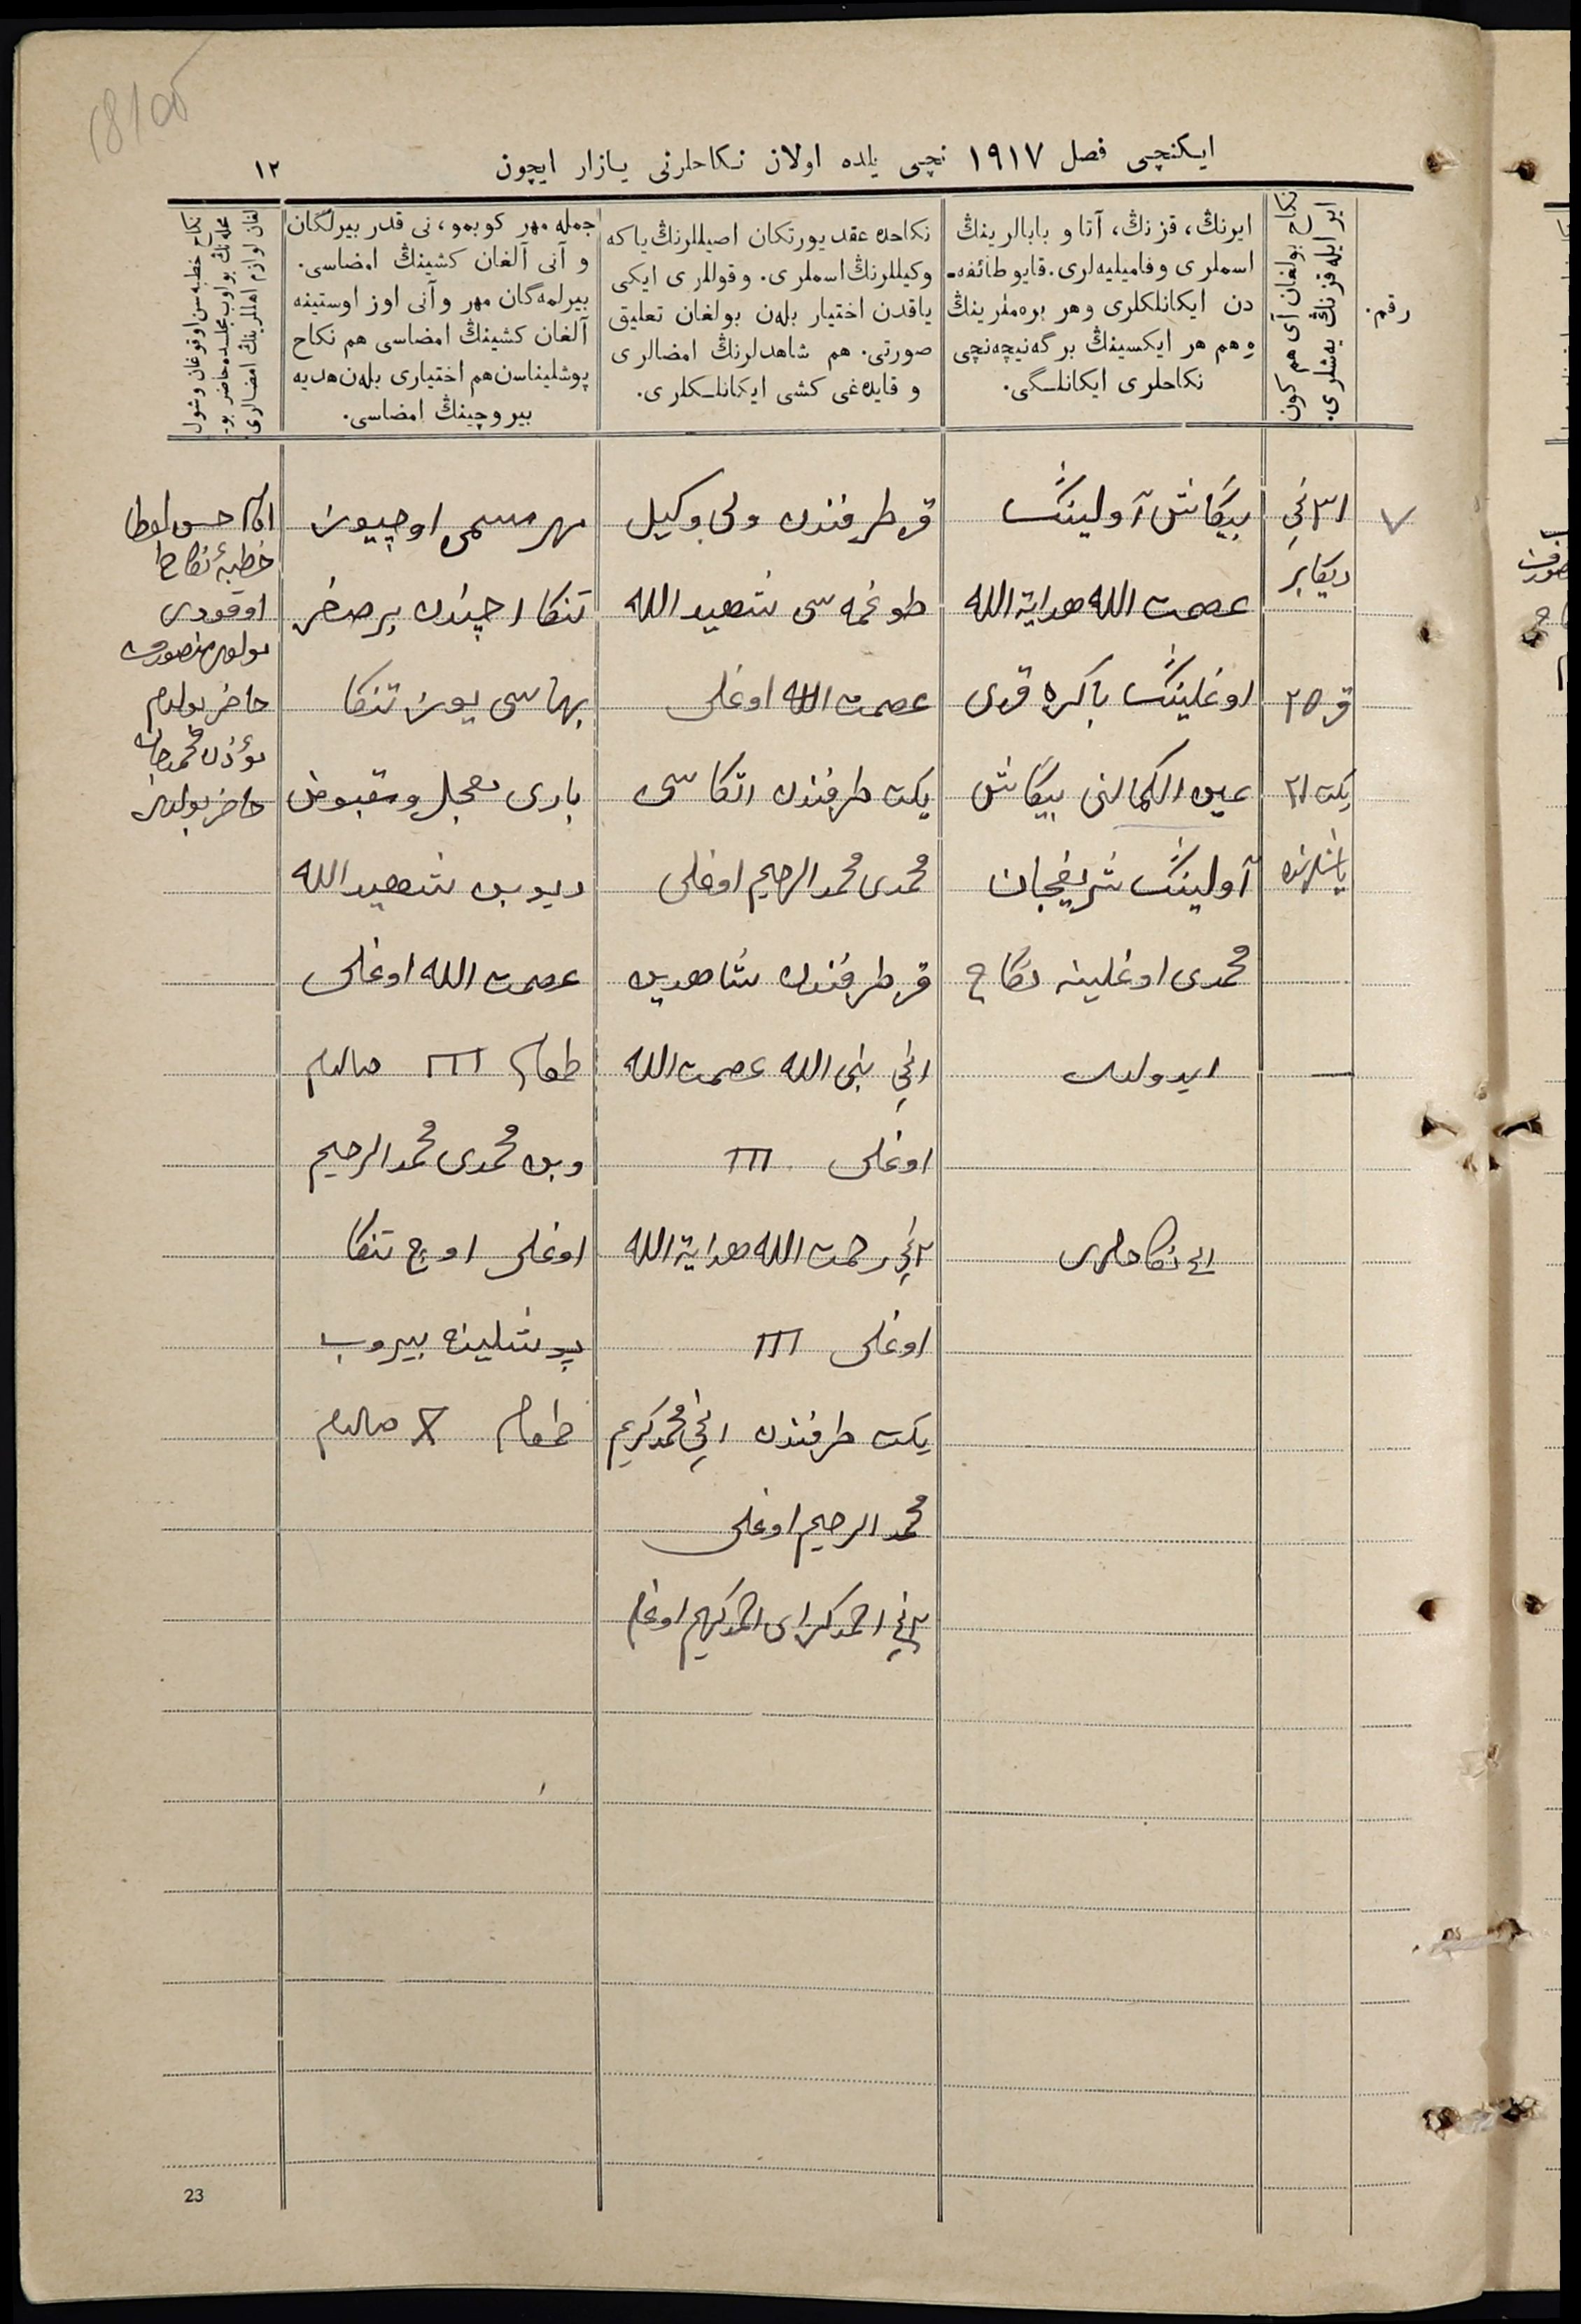 ایکنچی فصل ۱۹۱۷ نچی یلده اولان نکاحلرنی یازار ایچون
۱۲
رقم.
نکاح بولغان آی هم کون
ایر ایله قزنڭ یەشلری.
ایرنڭ، قزنڭ، آتا و بابالرینڭ
اسملری وفامیلیەلری. قایو طائفه‌
دن ایکانلکلری وهر بره‌ملرینڭ
وهم هر ایکسینڭ برگه‌نیچەنچی
نکاحلری ایکانلگی.
نکاحده عقد یورتکان اصیللرنڭ یا که
وکیللرنڭ اسملری. وقوللری ایکی
یاقدن اختیار بلەن بولغان تعلیق
صورتی. هم شاهدلرنڭ امضالری
و قایده‌غی کشی ایکانلکلری.
جمله مهر کوبمو، نی قدر بیرلگان
و آنی آلغان کشینڭ امضاسی.
بیرلمەگان مهر وآنی اوز اوستینه
آلغان کشینڭ امضاسی هم نکاح
پوشلیناسن هم اختیاری بلەن هدیه
بیروچینڭ امضاسی.
نکاح خطبەسن اوقوغان وشول
محله‌نڭ بولوب مجلسده حاضر بو
لغان لوازم اهللرینڭ امضالری
۷
۳۱ نچی
دیکابر
قز ۲۵
یکت ۲۱
یاشلرنده
بیکاش آولینڭ
عصمت الله هدایة الله
اوغلینڭ باکره قزی
عین الکمالنی بیکاش
آولینڭ شریفجان
محمدی اوغلینه نکاح
ایدولدی
نکاحلری
قز طرفندن ولی وکیل
طوغمه سی شهید الله
عصمت الله اوغلی
یکت طرفندن اتکاسی
محمدی محمد الرحیم اوغلی
قز طرفندن شاهدین
۱نچی نبی الله عصمت الله
اوغلی III
۲نچی رحمت الله هدایة الله
اوغلی III
یکت طرفندن ۱نچی محمد کریم
محمد الرحیم اوغلی
۲نچی احمد کرای احمد کریم اوغلی
مهر مسمی اوچیوز
تنکا اچندن بر صغر
بهاسی یوز تنکا
باری معجل ومقبوض
دیوب من شهید الله
عصمت الله اوغلی
طمغام III صالدم
ومن محمدی محمد الرحیم
اوغلی اوچ تنکا
پوشلینه بیروب
طمغام X صالدم
امام
خطبهٔ نکاح
اوقودی
حاضر بولدم
مؤذن محمدجان
حاضر بولدم
23